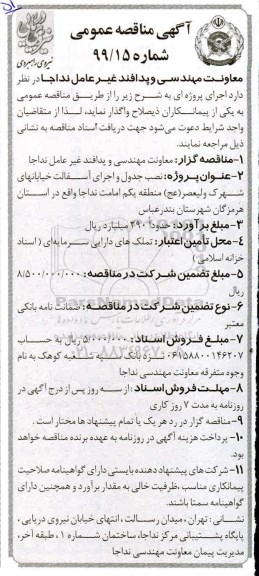 آگهی مناقصه عمومی
شماره ۹۹/۱۵
نیروی راهبردی
معاونت مهندسی و پدافند غیر عامل نداجا در نظر
دارد اجرای پروژه ای به شرح زیر را از طریق مناقصه عمومی
به یکی از پیمانکاران ذیصلاح واگذار نماید، لذا از متقاضیان
واجد شرایط دعوت می‌شود جهت دریافت اسناد مناقصه به نشانی
ذیل مراجعه نمایند.
۱-مناقصه گزار: معاونت مهندسی و پدافند غیر عامل نداجا
۲-عنوان پروژه: نصب جدول و اجرای آسفالت خیابانهای
شهرک ولیعصر(عج) منطقه یکم امامت نداجا واقع در استان
هرمزگان شهرستان بندرعباس
۳-مبلغ برآورد: حدود ۲۹۰ میلیارد ریال
۴-محل تأمین اعتبار: تملک های دارایی سرمایه‌ای ( اسناد
خزانه اسلامی )
۵-مبلغ تضمین شرکت در مناقصه: ۸/۵۰۰/۰۰۰/۰۰۰
ریال
۶-نوع تضمین شرکت در مناقصه: ضمانت نامه بانکی
معتبر
۷-مبلغ فروش اسناد: ۵/۰۰۰/۰۰۰ ریال به حساب
۰۶۱۵۸۸۰۰۱۴۶۲۰۷ نزد بانک سپه شعبه کوهک به نام
وجوه متفرقه معاونت مهندسی نداجا
۸-مهلت فروش اسناد: از سه روز پس از درج آگهی در
روزنامه به مدت ۷ روز کاری
۹-مناقصه گزار در رد هر یک یا تمام پیشنهاد ها مختار است.
۱۰- پرداخت هزینه آگهی در روزنامه به عهده برنده مناقصه خواهد
بود.
۱۱-شرکت های پیشنهاد دهنده بایستی دارای گواهینامه صلاحیت
پیمانکاری مناسب، ظرفیت خالی به مقدار برآورد و همچنین دارای
گواهینامه سمتا باشند.
نشانی: تهران، میدان رسالت، انتهای خیابان نیروی دریایی،
پایگاه پشتیبانی مرکز نداجا، ساختمان شماره ۱، طبقه آخر،
مدیریت پیمان معاونت مهندسی نداجا